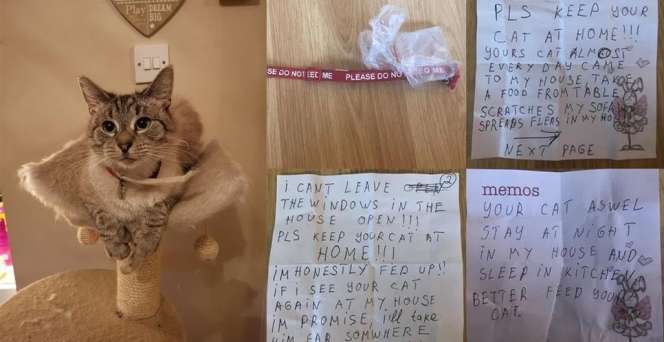 Play
DREAM
BIG
SE DO NOT FEED ME PLEASE DO NO ED ME
PLS KEEP YOUR
CAT AT HOME!!!
YOURS CAT ALMOST
EVERY DAY CAME
TO MY HOUSE, TAKE
A FOOD FROM TABLE
SCRATCHES MY SOFA
SPREADS FLEAS IN MY HO
NEXT PAGE
2
I CANT LEAVE
THE WINDOWS IN THE
HOUSE OPEN!!!
PLS KEEP YOUR CAT AT
HOME!!!
IM HONESTLY FED UP!!
IF I SEE YOUR CAT
AGAIN AT MY HOUSE
IM PROMISE, I'll take
HIM FAR SOMWHERE
memos
YOUR CAT ASWEL
STAY AT NIGHT
IN MY HOUSE AND
SLEEP IN KITCHEN
BETTER FEED YOUR
CAT.